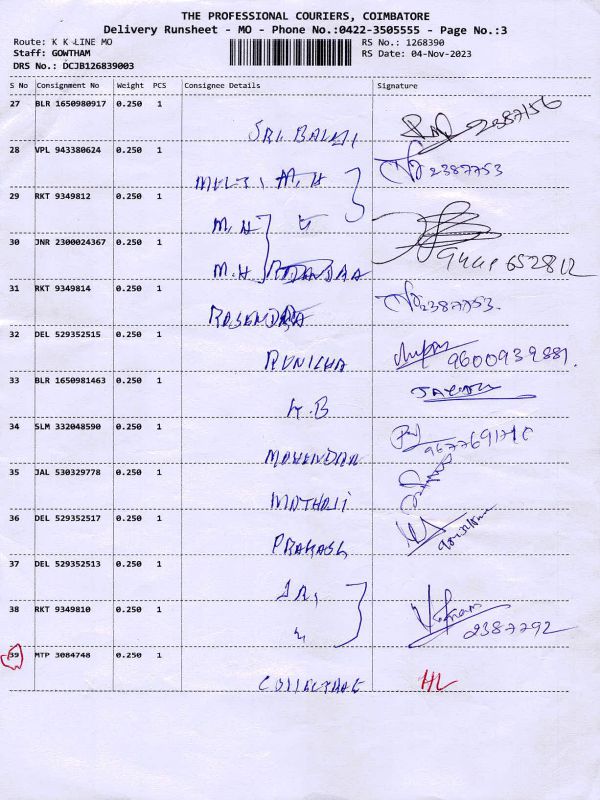 THE PROFESSIONAL COURIERS, COIMBATORE
Delivery Runsheet - MO - Phone No.:0422-3505555 - Page No.:3
Route: K K LINE MO
RS No.: 1268390
Staff: GOWTHAM
RS Date: 04-Nov-2023
DRS No.: DCJB126839003
S No Consignment No Weight PCS Consignee Details Signature
27 BLR 1650980917 0.250 1
2387156
SRI. BALAJI
28 VPL 943380624 0.250 1
2387753
MULTI M.H
29 RKT 9349812 0.250 1
M.H
30 JNR 2300024367 0.250 1
M.H
31 RKT 9349814 0.250 1
2387753.
RAJENDRA
32 DEL 529352515 0.250 1
9600939881.
RUNICHA
33 BLR 1650981463 0.250 1
K.B
34 SLM 332048590 0.250 1
MAHENDAR
35 JAL 530329778 0.250 1
MATHAJI
36 DEL 529352517 0.250 1
PRAKASH
37 DEL 529352513 0.250 1
38 RKT 9349810 0.250 1
2387792
39 MTP 3084748 0.250 1
HL